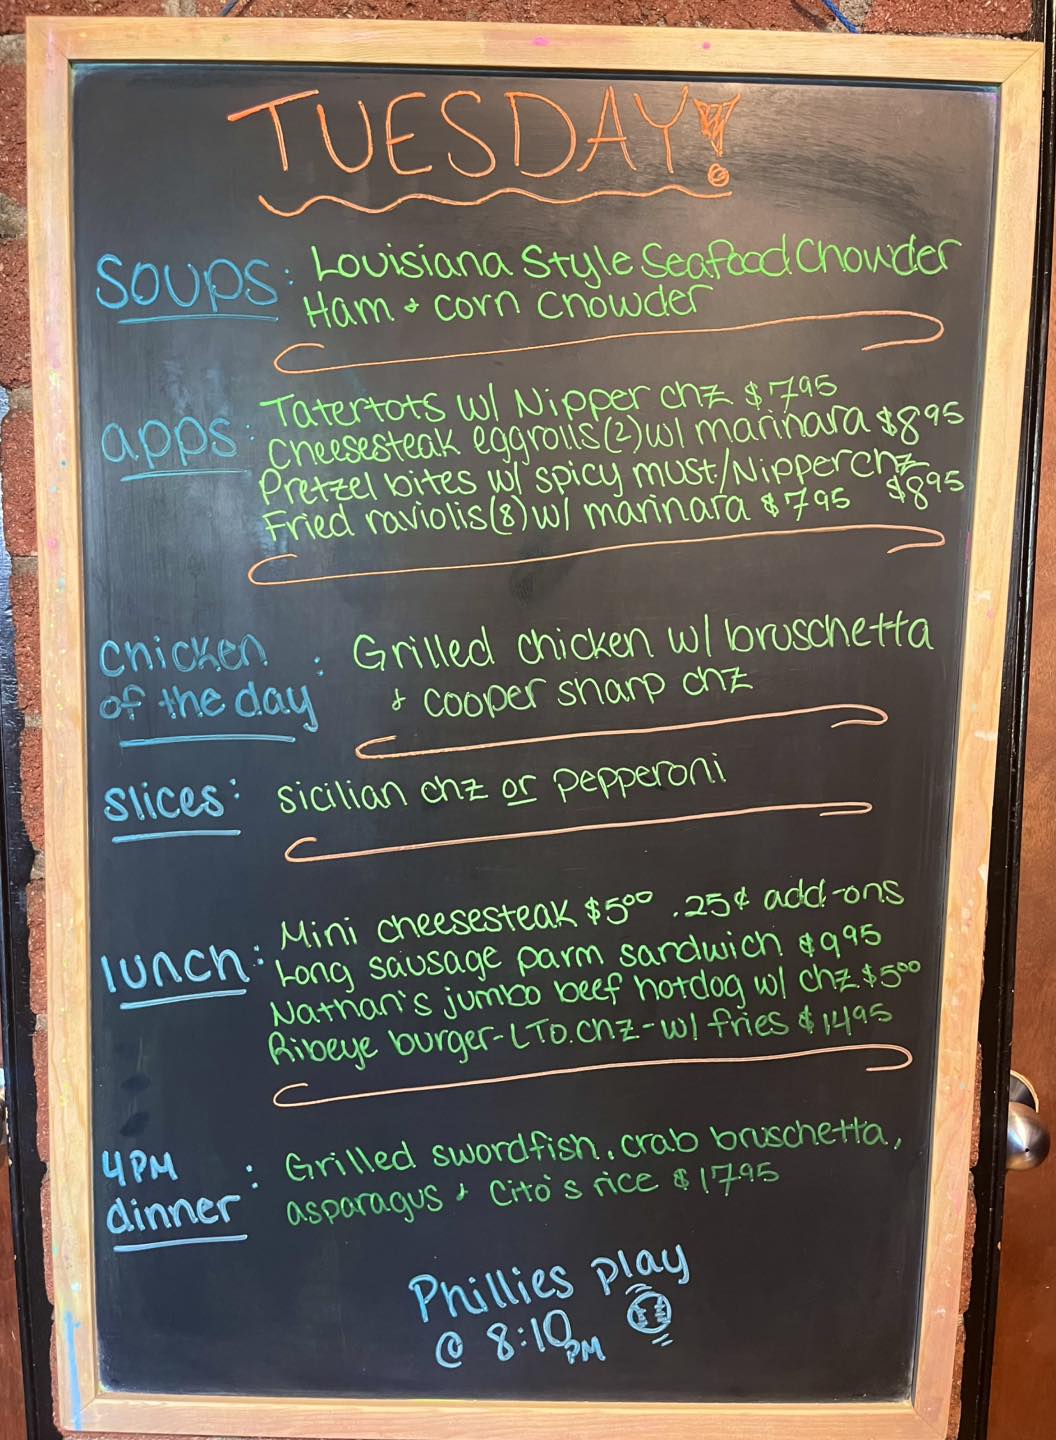 TUESDAY!
SOUPS: Louisiana Style Seafood Chowder
Ham & corn chowder
apps: Tatertots w/ Nipper chz $7.95
Cheesesteak eggrolls(2)w/ marinara $8.95
Pretzel bites w/ spicy must/Nipper chz $8.95
Fried raviolis(8)w/ marinara $7.95
chicken of the day: Grilled chicken w/ bruschetta
& cooper sharp chz
slices: sicilian chz or pepperoni
lunch: Mini cheesesteak $5.00 .25¢ add-ons
Long sausage parm sandwich $9.95
Nathan's jumbo beef hotdog w/ chz $5.00
Ribeye burger-LTO.chz-w/ fries $14.95
4PM dinner: Grilled swordfish, crab bruschetta,
asparagus & Cito's rice $17.95
Phillies play
@ 8:10PM